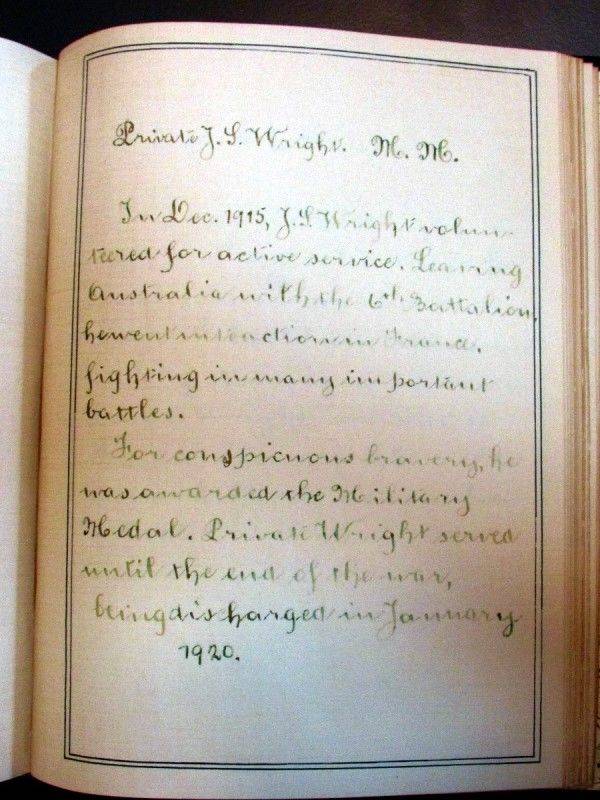 Private J. S. Wright. M. M.
In Dec. 1915, J. S. Wright volun-
teered for active service. Leaving
Australia with the 6th Battalion,
he went into action in France,
fighting in many important
battles.
For conspicuous bravery, he
was awarded the Military
Medal. Private Wright served
until the end of the war,
being discharged in January
1920.